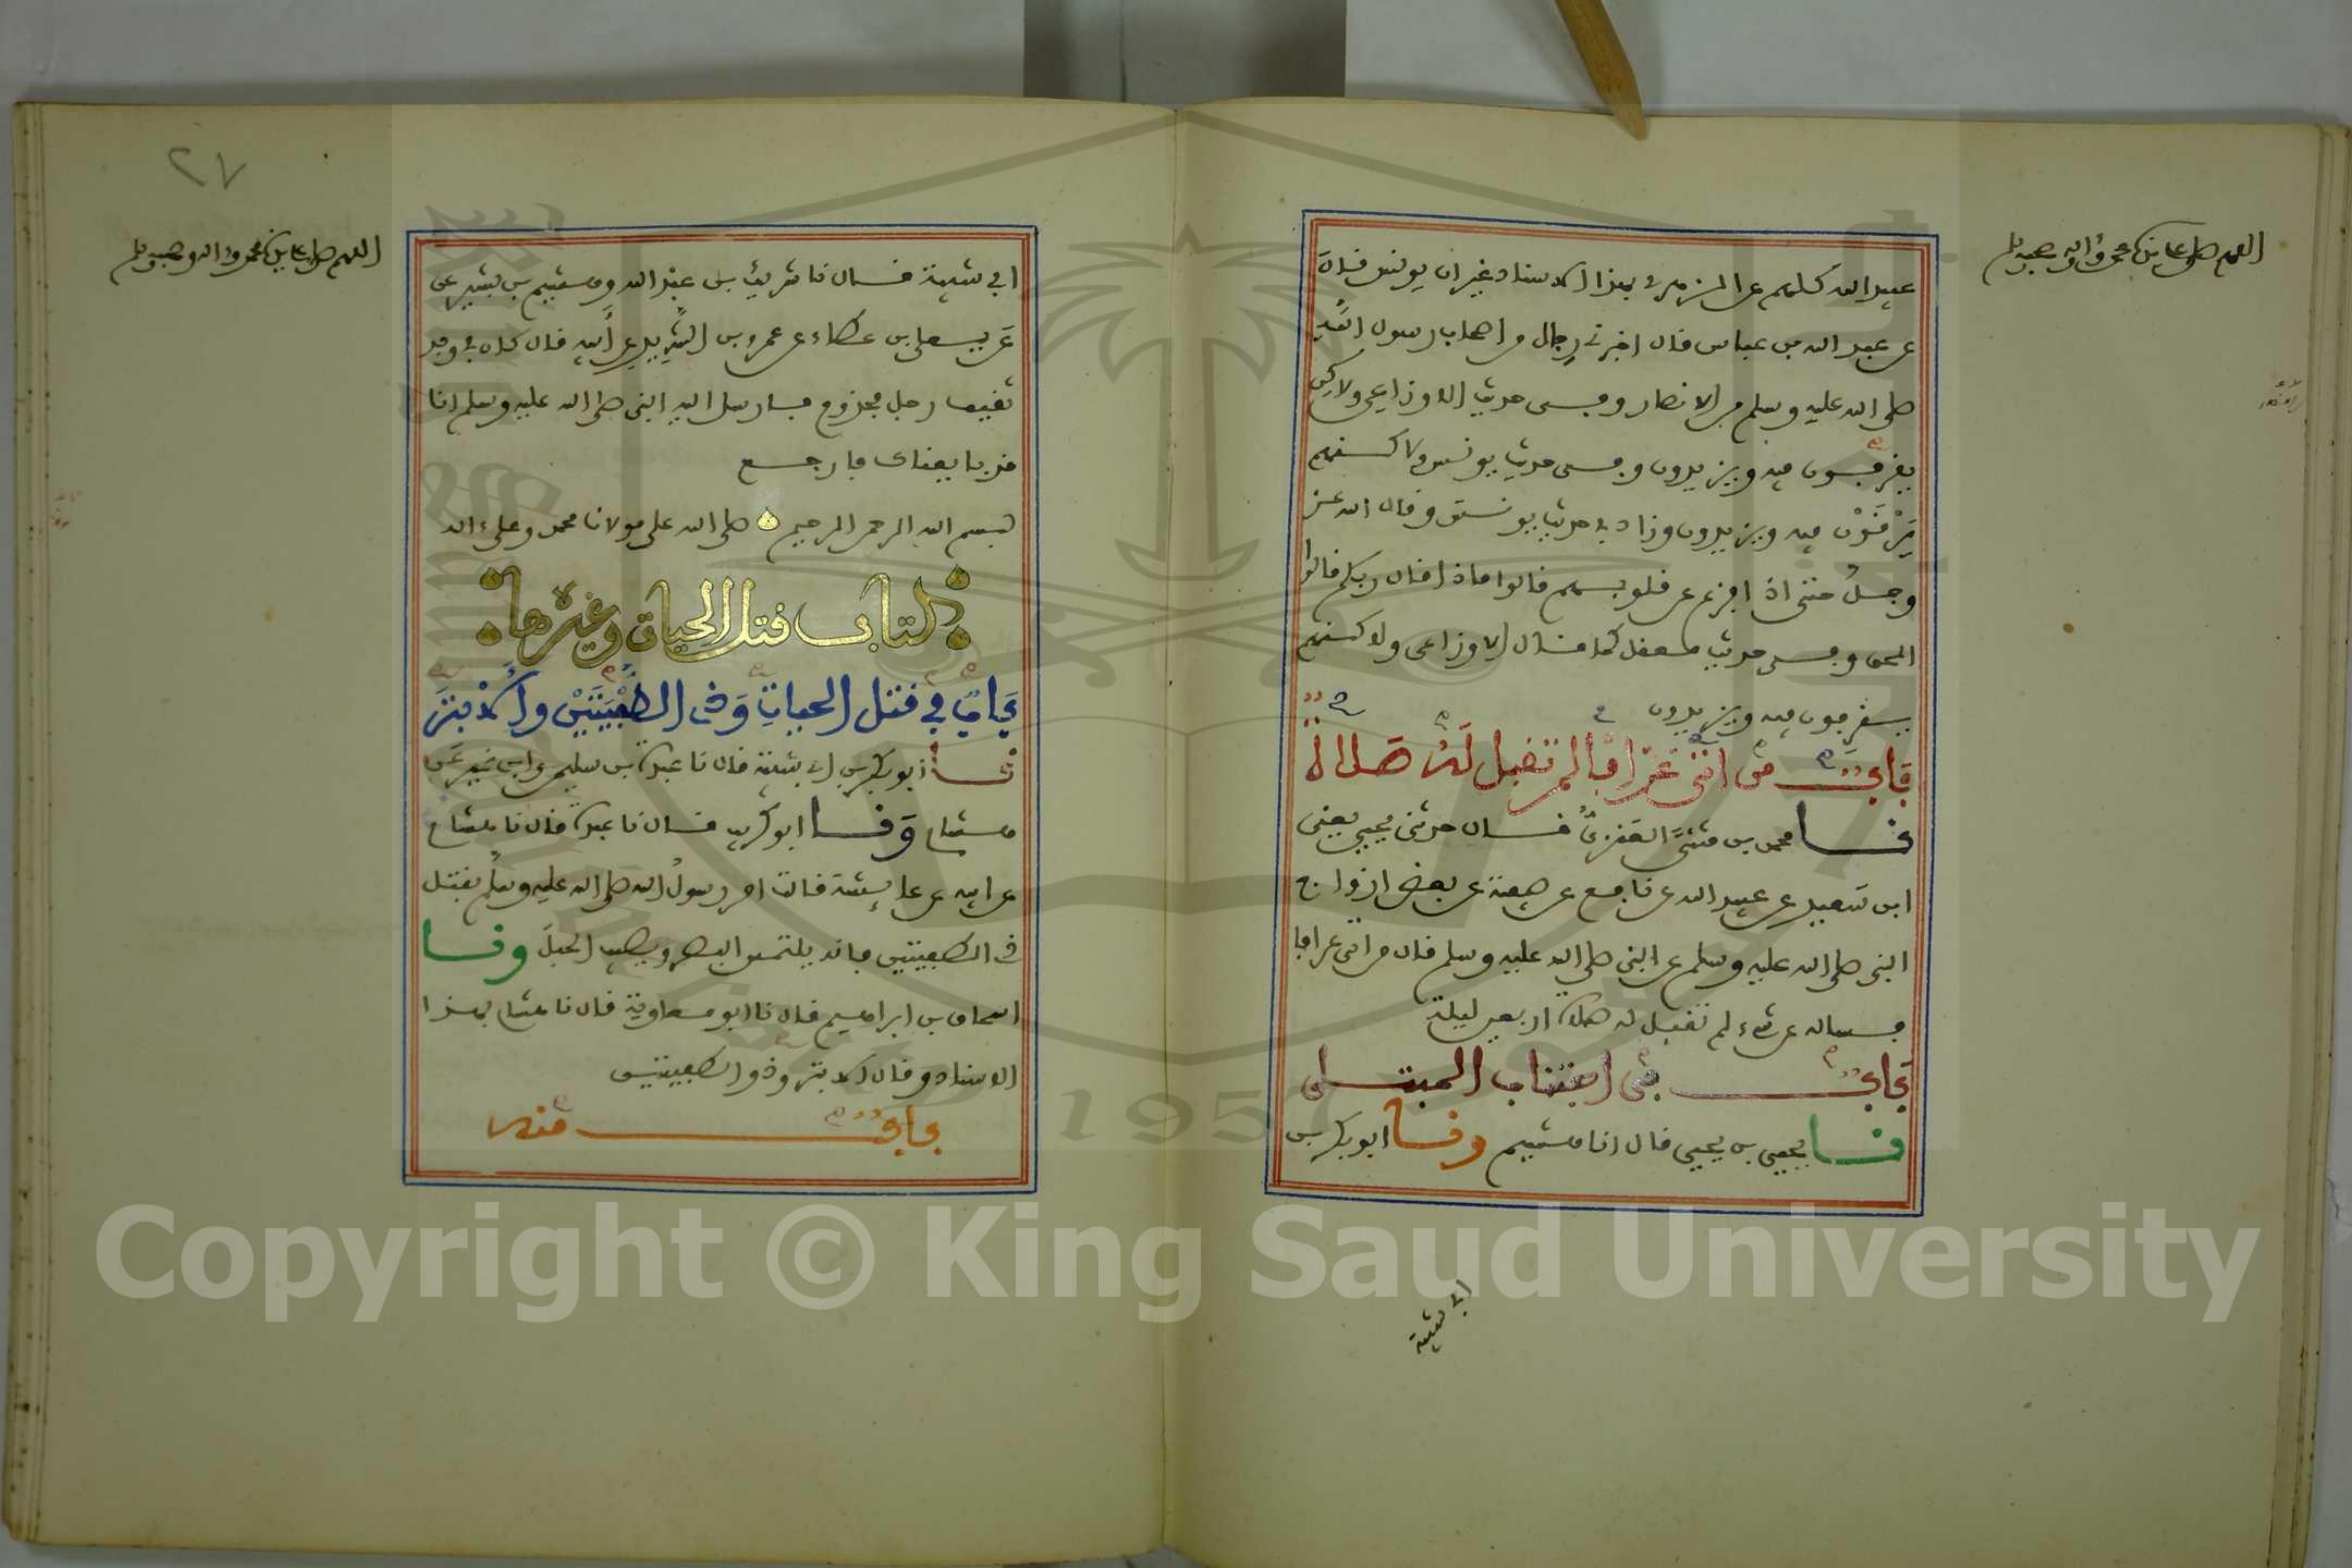 اللهم صل على سيدنا محمد وءاله وصحبه وسلم
عبيد الله كلهم عن الزهري بهذا الاسناد غير ان يونس قال
عن عبد الله بن عباس قال اخبرني رجال من اصحاب رسول الله
صلى الله عليه وسلم من الانصار وفي حديث الاوزاعي ولاكن
يقرفون فيه ويزيدون وفي حديث يونس ولاكنهم
يَرْقَوْن فيه ويزيدون وزاد في حديث يونس وقال الله عز
وجل حتى اذا فزع عن قلوبهم قالوا ماذا قال ربكم قالوا
الحق وفي حديث معقل كما قال الاوزاعي ولاكنهم
يقرفون فيه ويزيدون
بَابٌ من اتى عَرّافا لم تقبل لَهُ صَلاة
نا محمد بن مثنى العَنَزيُّ قال حدثني يحيى يعني
ابن سَعيد عن عبيد الله عن نافع عن صفية عن بعض ازواج
النبي صلى الله عليه وسلم عن النبي صلى الله عليه وسلم قال من اتى عرافا
فساله عن شيء لم تقبل له صلاة اربعين ليلة
بَابٌ في اجتناب المبتلى
نا يحيى بن يحيى قال انا هشيم ونا ابو بكر بن
ابي شيبة
٢٧
اللهم صل على سيدنا محمد وءاله وصحبه وسلم
ابي شيبة قال نا شريك بن عبد الله وهشيم بن بشير عن
عَن يعلى بن عطاء عن عمرو بن الشَّرِيد عن أبيه قال كان في وفد
ثقيف رجل مجذوم فارسل اليه النبي صلى الله عليه وسلم انا
قد بايعناك فارجع
بسم الله الرحمن الرحيم صلى الله على مولانا محمد وعلى ءاله
كتاب قتل الحيات وغيرها
بَابٌ في قتل الحياتِ وَذي الطُّفْيَتَيْنِ والأَبْتَر
نا ابو بكر بن ابي شيبة قال نا عبدة بن سليمن وابن نمير عَن
هشام وَنا ابو كريب قال نا عبدة قال نا هشام
عن ابيه عن عايشة قالت امر رسولُ الله صلى الله عليه وسلم بقتل
ذي الطفيتين فانه يلتمس البصر ويصيب الحبلَ ونا
اسحاق بن ابراهيم قال نا ابو معاوية قال نا هشام بهذا
الاسناد وقال الابتر وذو الطفيتين
بابٌ منه
Copyright © King Saud University
1957